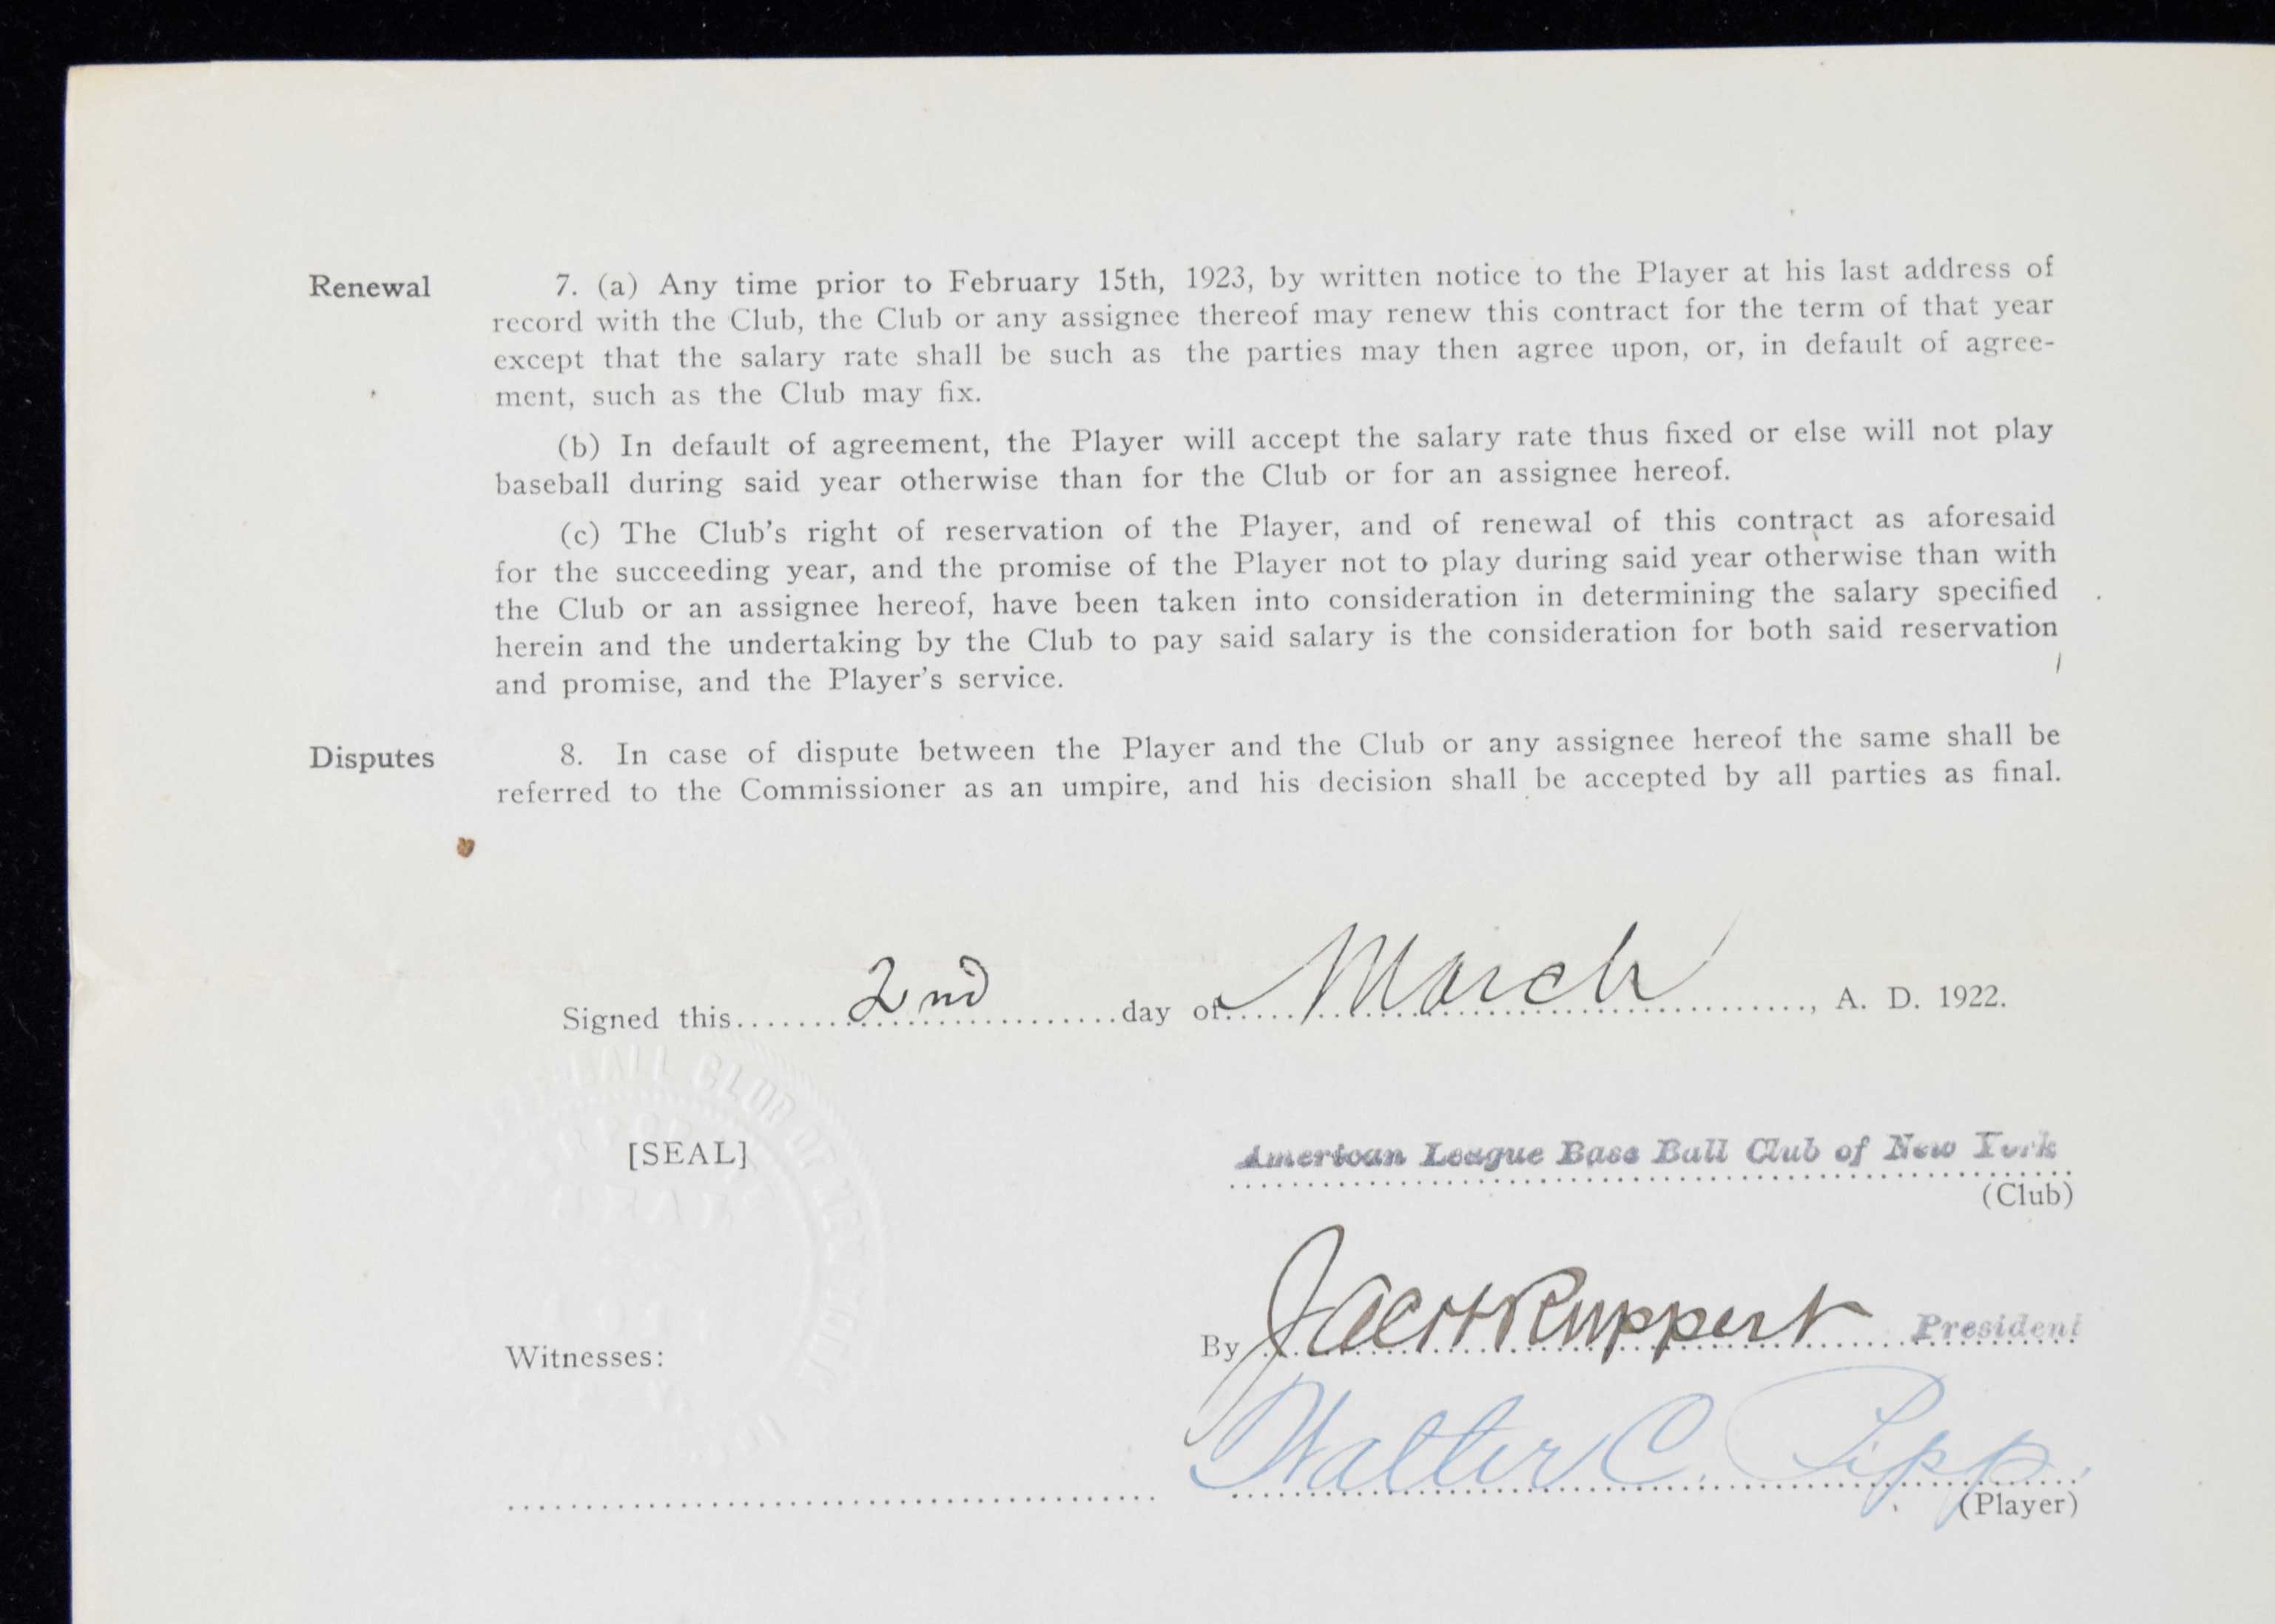 Renewal 7. (a) Any time prior to February 15th, 1923, by written notice to the Player at his last address of
record with the Club, the Club or any assignee thereof may renew this contract for the term of that year
except that the salary rate shall be such as the parties may then agree upon, or, in default of agree-
ment, such as the Club may fix.
(b) In default of agreement, the Player will accept the salary rate thus fixed or else will not play
baseball during said year otherwise than for the Club or for an assignee hereof.
(c) The Club's right of reservation of the Player, and of renewal of this contract as aforesaid
for the succeeding year, and the promise of the Player not to play during said year otherwise than with
the Club or an assignee hereof, have been taken into consideration in determining the salary specified
herein and the undertaking by the Club to pay said salary is the consideration for both said reservation
and promise, and the Player's service.
Disputes 8. In case of dispute between the Player and the Club or any assignee hereof the same shall be
referred to the Commissioner as an umpire, and his decision shall be accepted by all parties as final.
Signed this 2nd day of March, A. D. 1922.
BALL CLUB OF NEW YORK
SEAL
[SEAL]
American League Base Ball Club of New York
(Club)
By Jacob Ruppert President
Witnesses:
Walter C. Pipp.
(Player)